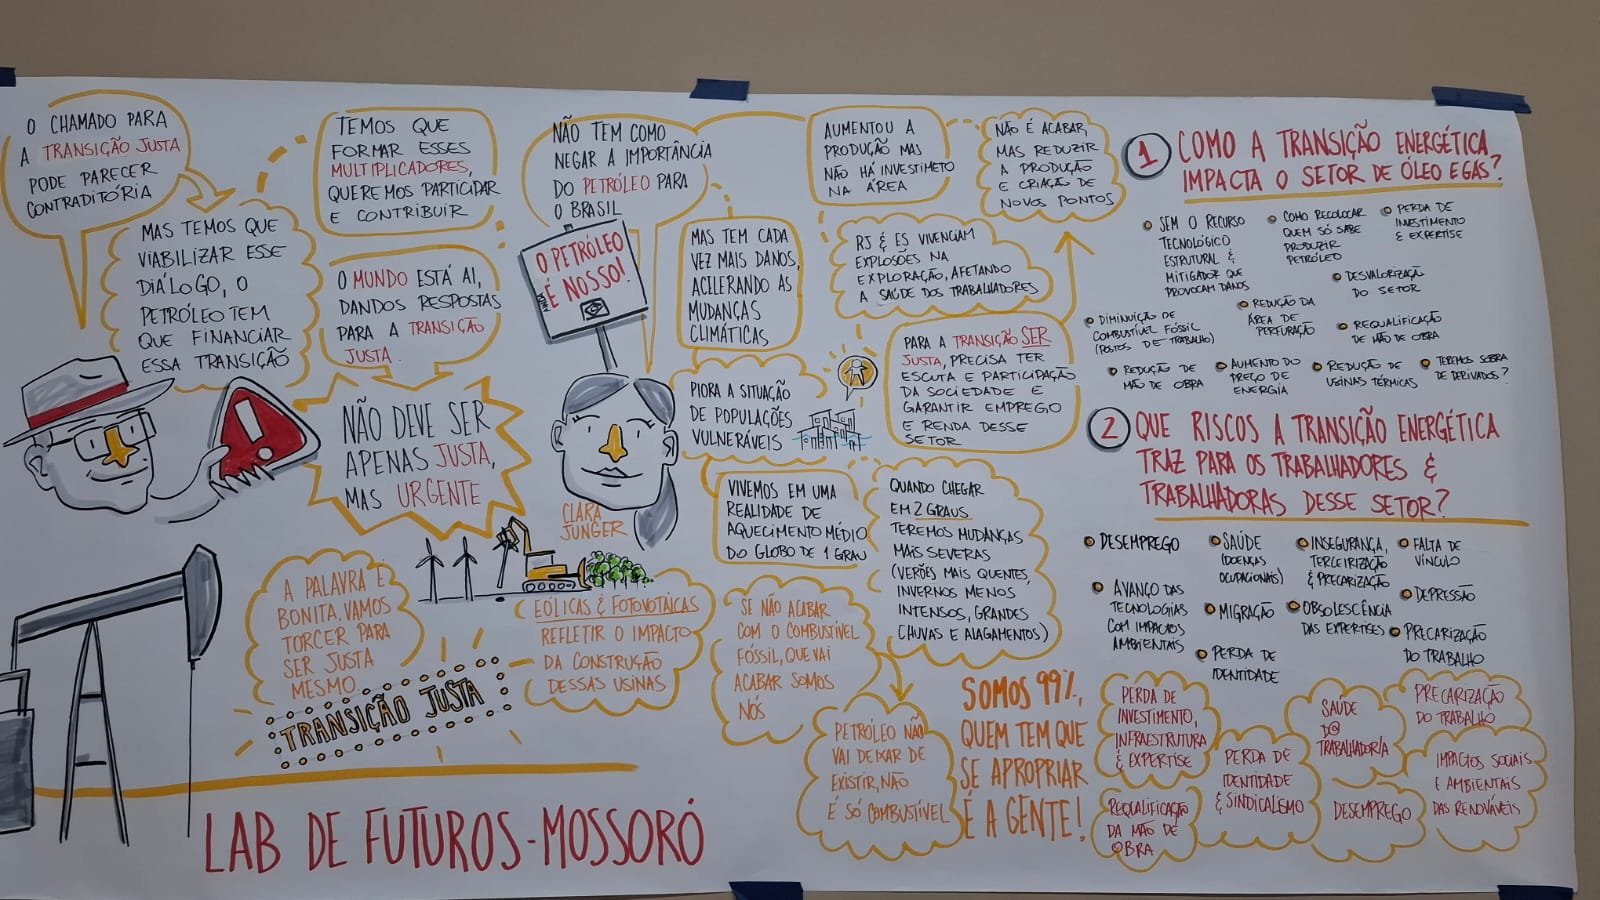 O CHAMADO PARA
A TRANSIÇÃO JUSTA
PODE PARECER
CONTRADITÓRIA
MAS TEMOS QUE
VIABILIZAR ESSE
DIÁLOGO, O
PETRÓLEO TEM
QUE FINANCIAR
ESSA TRANSIÇÃO
TEMOS QUE
FORMAR ESSES
MULTIPLICADORES,
QUEREMOS PARTICIPAR
E CONTRIBUIR
O MUNDO ESTÁ AI,
DANDOS RESPOSTAS
PARA A TRANSIÇÃO
JUSTA.
NÃO DEVE SER
APENAS JUSTA,
MAS URGENTE
A PALAVRA É
BONITA, VAMOS
TORCER PARA
SER JUSTA
MESMO.
TRANSIÇÃO JUSTA
EÓLICAS & FOTOVOTÁICAS
REFLETIR O IMPACTO
DA CONSTRUÇÃO
DESSAS USINAS
LAB DE FUTUROS - MOSSORÓ
NÃO TEM COMO
NEGAR A IMPORTÂNCIA
DO PETRÓLEO PARA
O BRASIL
O PETRÓLEO
É NOSSO!
CLARA
JUNGER
MAS TEM CADA
VEZ MAIS DANOS,
ACILERANDO AS
MUDANÇAS
CLIMÁTICAS
PIORA A SITUAÇÃO
DE POPULAÇÕES
VULNERÁVEIS
VIVEMOS EM UMA
REALIDADE DE
AQUECIMENTO MÉDIO
DO GLOBO DE 1 GRAU
QUANDO CHEGAR
EM 2 GRAUS
TEREMOS MUDANÇAS
MAIS SEVERAS
(VERÕES MAIS QUENTES,
INVERNOS MENOS
INTENSOS, GRANDES
CHUVAS E ALAGAMENTOS)
SE NÃO ACABAR
COM O COMBUSTÍVEL
FÓSSIL, QUE VAI
ACABAR SOMOS
NÓS
PETRÓLEO NÃO
VAI DEIXAR DE
EXISTIR, NÃO
É SÓ COMBUSTÍVEL
SOMOS 99%,
QUEM TEM QUE
SE APROPRIAR
É A GENTE!
AUMENTOU A
PRODUÇÃO MAS
NÃO HÁ INVESTIMETO
NA ÁREA
NÃO É ACABAR,
MAS REDUZIR
A PRODUÇÃO
E CRIAÇÃO DE
NOVOS PONTOS
RJ & ES VIVENCIAM
EXPLOSÕES NA
EXPLORAÇÃO, AFETANDO
A SAÚDE DOS TRABALHADORES
PARA A TRANSIÇÃO SER
JUSTA, PRECISA TER
ESCUTA E PARTICIPAÇÃO
DA SOCIEDADE E
GARANTIR EMPREGO
E RENDA DESSE
SETOR
1 COMO A TRANSIÇÃO ENERGÉTICA
IMPACTA O SETOR DE ÓLEO E GÁS?
SEM O RECURSO
TECNOLÓGICO
ESTRUTURAL &
MITIGADOR QUE
PROVOCAM DANOS
COMO RECOLOCAR
QUEM SÓ SABE
PRODUZIR
PETRÓLEO
PERDA DE
INVESTIMENTO
& EXPERTISE
DESVALORIZAÇÃO
DO SETOR
DIMINUIÇÃO DE
COMBUSTÍVEL FÓSSIL
(POSTOS DE TRABALHO)
REDUÇÃO DA
ÁREA DE
PERFURAÇÃO
REQUALIFICAÇÃO
DE MÃO DE OBRA
REDUÇÃO DE
MÃO DE OBRA
AUMENTO DO
PREÇO DE
ENERGIA
REDUÇÃO DE
USINAS TÉRMICAS
TEREMOS SOBRA
DE DERIVADOS?
2 QUE RISCOS A TRANSIÇÃO ENERGÉTICA
TRAZ PARA OS TRABALHADORES &
TRABALHADORAS DESSE SETOR?
DESEMPREGO
SAÚDE
(DOENÇAS
OCUPACIONAIS)
INSEGURANÇA,
TERCEIRIZAÇÃO
& PRECARIZAÇÃO
FALTA DE
VÍNCULO
AVANÇO DAS
TECNOLOGIAS
COM IMPACTOS
AMBIENTAIS
MIGRAÇÃO
OBSOLESCÊNCIA
DAS EXPERTISES
DEPRESSÃO
PERDA DE
IDENTIDADE
PRECARIZAÇÃO
DO TRABALHO
PERDA DE
INVESTIMENTO,
INFRAESTRUTURA
& EXPERTISE
REQUALIFICAÇÃO
DA MÃO DE
OBRA
PERDA DE
IDENTIDADE
& SINDICALISMO
SAÚDE
D@
TRABALHADOR/A
DESEMPREGO
PRECARIZAÇÃO
DO TRABALHO
IMPACTOS SOCIAIS
E AMBIENTAIS
DAS RENOVÁVEIS